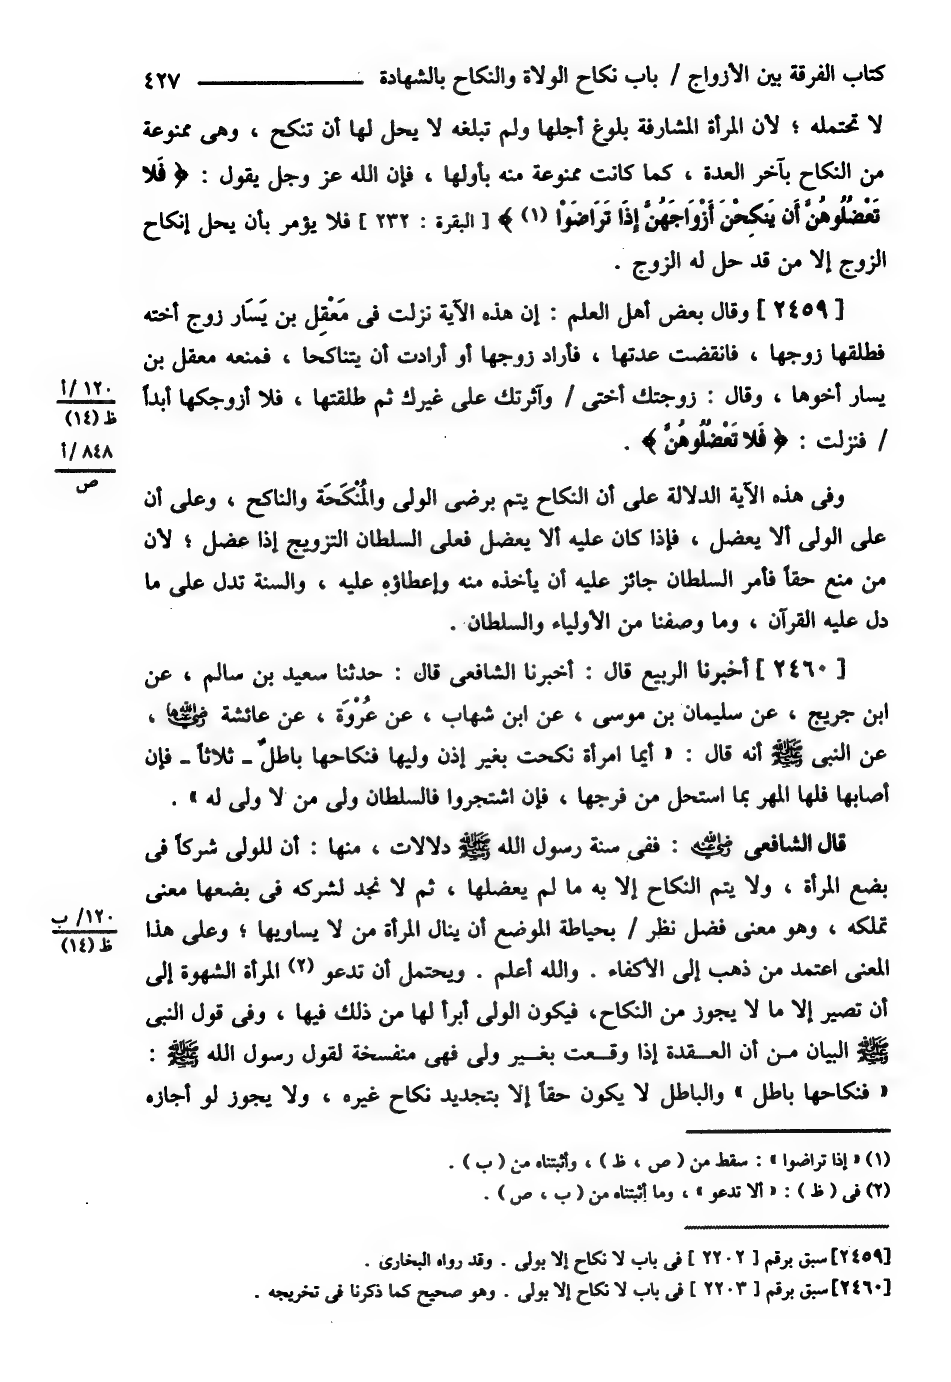 كتاب الفرقة بين الأزواج / باب نكاح الولاة والنكاح بالشهادة ٤٢٧
لا تحتمله ؛ لأن المرأة المشارفة بلوغ أجلها ولم تبلغه لا يحل لها أن تنكح ، وهى ممنوعة
من النكاح بآخر العدة ، كما كانت ممنوعة منه بأولها ، فإن الله عز وجل يقول : ﴿ فَلا
تَعْضُلُوهُنَّ أَن يَنكِحْنَ أَزْوَاجَهُنَّ إِذَا تَرَاضَوْا (١) ﴾ [ البقرة : ٢٣٢ ] فلا يؤمر بأن يحل إنكاح
الزوج إلا من قد حل له الزوج .
[ ٢٤٥٩ ] وقال بعض أهل العلم : إن هذه الآية نزلت فى مَعْقِل بن يَسَار زوج أخته
فطلقها زوجها ، فانقضت عدتها ، فأراد زوجها أو أرادت أن يتناكحا ، فمنعه معقل بن
يسار أخوها ، وقال : زوجتك أختى / وآثرتك على غيرك ثم طلقتها ، فلا أزوجكها أبداً
/ فنزلت : ﴿ فَلا تَعْضُلُوهُنَّ ﴾ .
١٢٠ /أ
ظ (١٤)
٨٤٨ /أ
ص
وفى هذه الآية الدلالة على أن النكاح يتم برضى الولى والمُنْكَحَة والناكح ، وعلى أن
على الولى ألا يعضل ، فإذا كان عليه ألا يعضل فعلى السلطان التزويج إذا عضل ؛ لأن
من منع حقاً فأمر السلطان جائز عليه أن يأخذه منه وإعطاؤه عليه ، والسنة تدل على ما
دل عليه القرآن ، وما وصفنا من الأولياء والسلطان .
[ ٢٤٦٠ ] أخبرنا الربيع قال : أخبرنا الشافعى قال : حدثنا سعيد بن سالم ، عن
ابن جريج ، عن سليمان بن موسى ، عن ابن شهاب ، عن عُرْوَة ، عن عائشة رضي الله عنها ،
عن النبى ﷺ أنه قال : « أيما امرأة نكحت بغير إذن وليها فنكاحها باطلٌ ـ ثلاثاً ـ فإن
أصابها فلها المهر بما استحل من فرجها ، فإن اشتجروا فالسلطان ولى من لا ولى له » .
قال الشافعى رضي الله عنه : ففى سنة رسول الله ﷺ دلالات ، منها : أن للولى شركاً فى
بضع المرأة ، ولا يتم النكاح إلا به ما لم يعضلها ، ثم لا نجد لشركه فى بضعها معنى
تملكه ، وهو معنى فضل نظر / بحياطة الموضع أن ينال المرأة من لا يساويها ؛ وعلى هذا
١٢٠/ ب
ظ (١٤)
المعنى اعتمد من ذهب إلى الأكفاء . والله أعلم . ويحتمل أن تدعو (٢) المرأة الشهوة إلى
أن تصير إلا ما لا يجوز من النكاح، فيكون الولى أبرأ لها من ذلك فيها ، وفى قول النبى
ﷺ البيان مـن أن العـقدة إذا وقـعت بغـير ولى فهى منفسخة لقول رسول الله ﷺ :
« فنكاحها باطل » والباطل لا يكون حقاً إلا بتجديد نكاح غيره ، ولا يجوز لو أجازه
(١) « إذا تراضوا » : سقط من ( ص ، ظ ) ، وأثبتناه من ( ب ) .
(٢) فى ( ظ ) : « ألا تدعو » ، وما أثبتناه من ( ب ، ص ) .
[٢٤٥٩] سبق برقم [ ٢٢٠٢ ] فى باب لا نكاح إلا بولى . وقد رواه البخارى .
[٢٤٦٠] سبق برقم [ ٢٢٠٣ ] فى باب لا نكاح إلا بولى . وهو صحيح كما ذكرنا فى تخريجه .